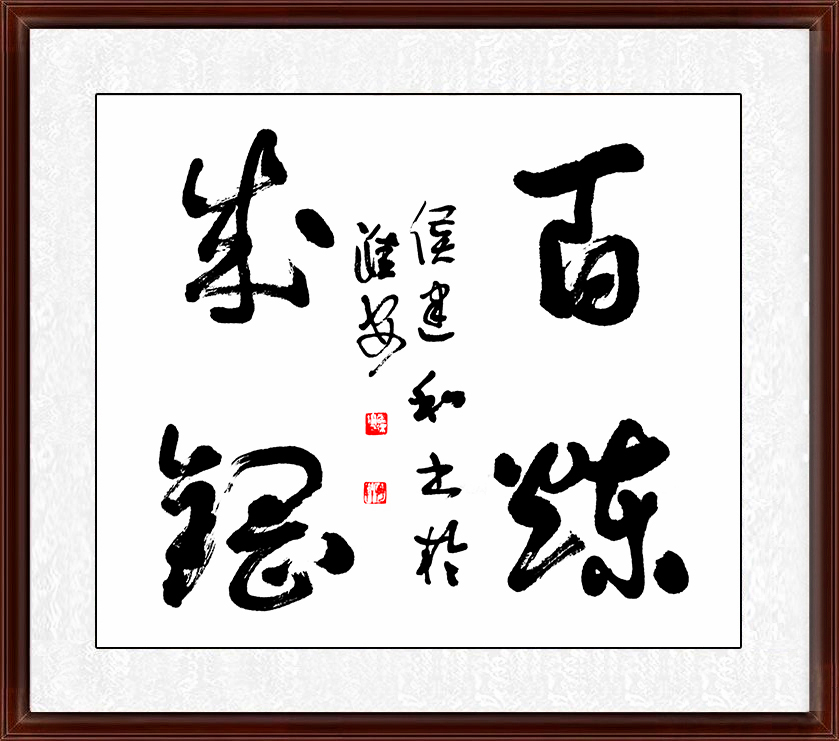 百炼
成钢
侯建和书於
淮安